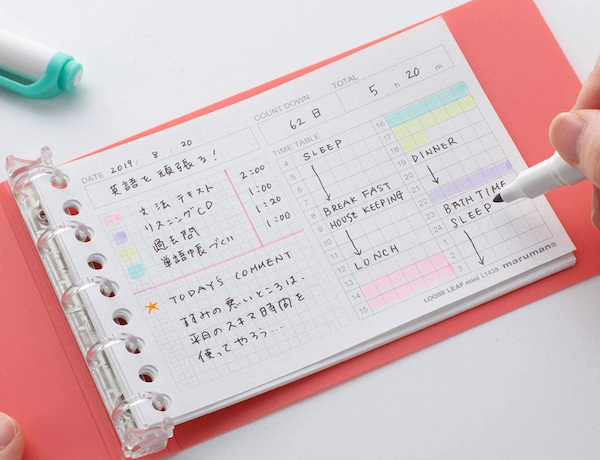 DATE 2019 / 8 / 20
英語を頑張る!
文法テキスト 2:00
リスニングCD 1:00
過去問 1:20
単語帳づくり 1:00
TODAY'S COMMENT
の悪いところは、
平日のスキマ時間を
使ってやろう....
COUNT DOWN
62日
TOTAL
5 h 20 m
TIME TABLE
4 SLEEP
5
6
7
8 BREAK FAST
9 HOUSE KEEPING
10
11
12 LUNCH
13
14
15
16
17
18
19 DINNER
20
21
22
23 BATH TIME
24 SLEEP
1
2
3
LOOSE LEAF mini L1439 maruman®